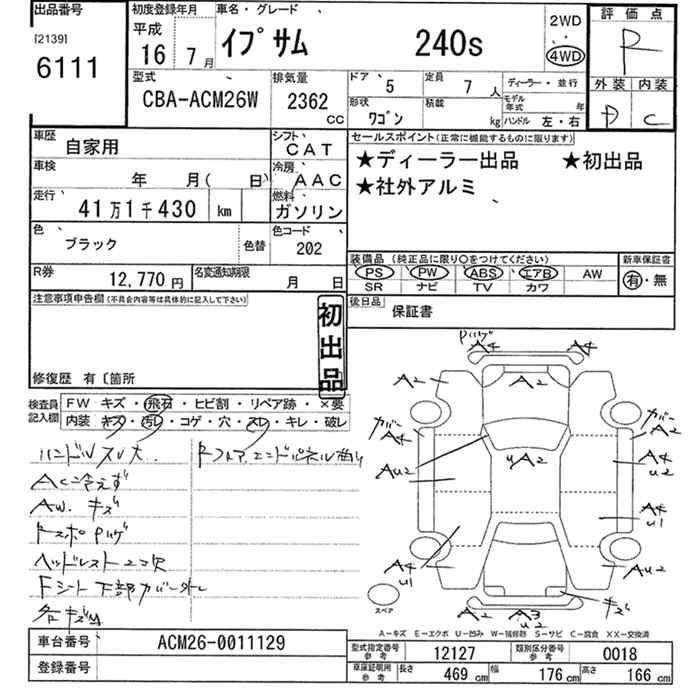 出品番号
[2139]
6111
初度登録年月
平成
16 7月
車名・グレード
イプサム 240s
2WD
4WD
評価点
R
外装 内装
D C
型式
CBA-ACM26W
排気量
2362 cc
ドア 5
定員 7人
形状 ワゴン
積載 kg
ディーラー・並行
モデル年式 年
ハンドル 左・右
車歴 自家用
車検 年 月( 日)
走行 41万1千430 km
色 ブラック 色替
シフト CAT
冷房 AAC
燃料 ガソリン
色コード 202
R券 12,770円
名変通知期限 月 日
セールスポイント(正常に機能するものに限ります)
★ディーラー出品 ★初出品
★社外アルミ
装備品(純正品に限り○をつけてください)
PS PW ABS エアB AW
SR ナビ TV カワ
新車保証書
有・無
後日品 保証書
注意事項申告欄(不具合内容等は具体的に記入して下さい)
初出品
修復歴 有〔箇所
検査員記入欄
FW キズ・飛石・ヒビ割・リペア跡・×要
内装 キズ・汚レ・コゲ・穴・スレ・キレ・破レ
ハンドルスレ大
AC冷えず
AW. キズ
ヘッドレスト
Fシート下部カバー
各キズ
A4 A4
A2 A2
カバー A4
カバー A2
Au2 uA2 A4 u2
A4 u1
A4 u1
Au2
A2 A3 u2 キズ
スペア
A−キズ E−エクボ U−凹み W−補修跡 S−サビ C−腐食 XX−交換済
車台番号 ACM26-0011129
登録番号
型式指定番号 参考 12127
類別区分番号 参考 0018
車庫証明用 参考 長さ 469 cm 幅 176 cm 高さ 166 cm